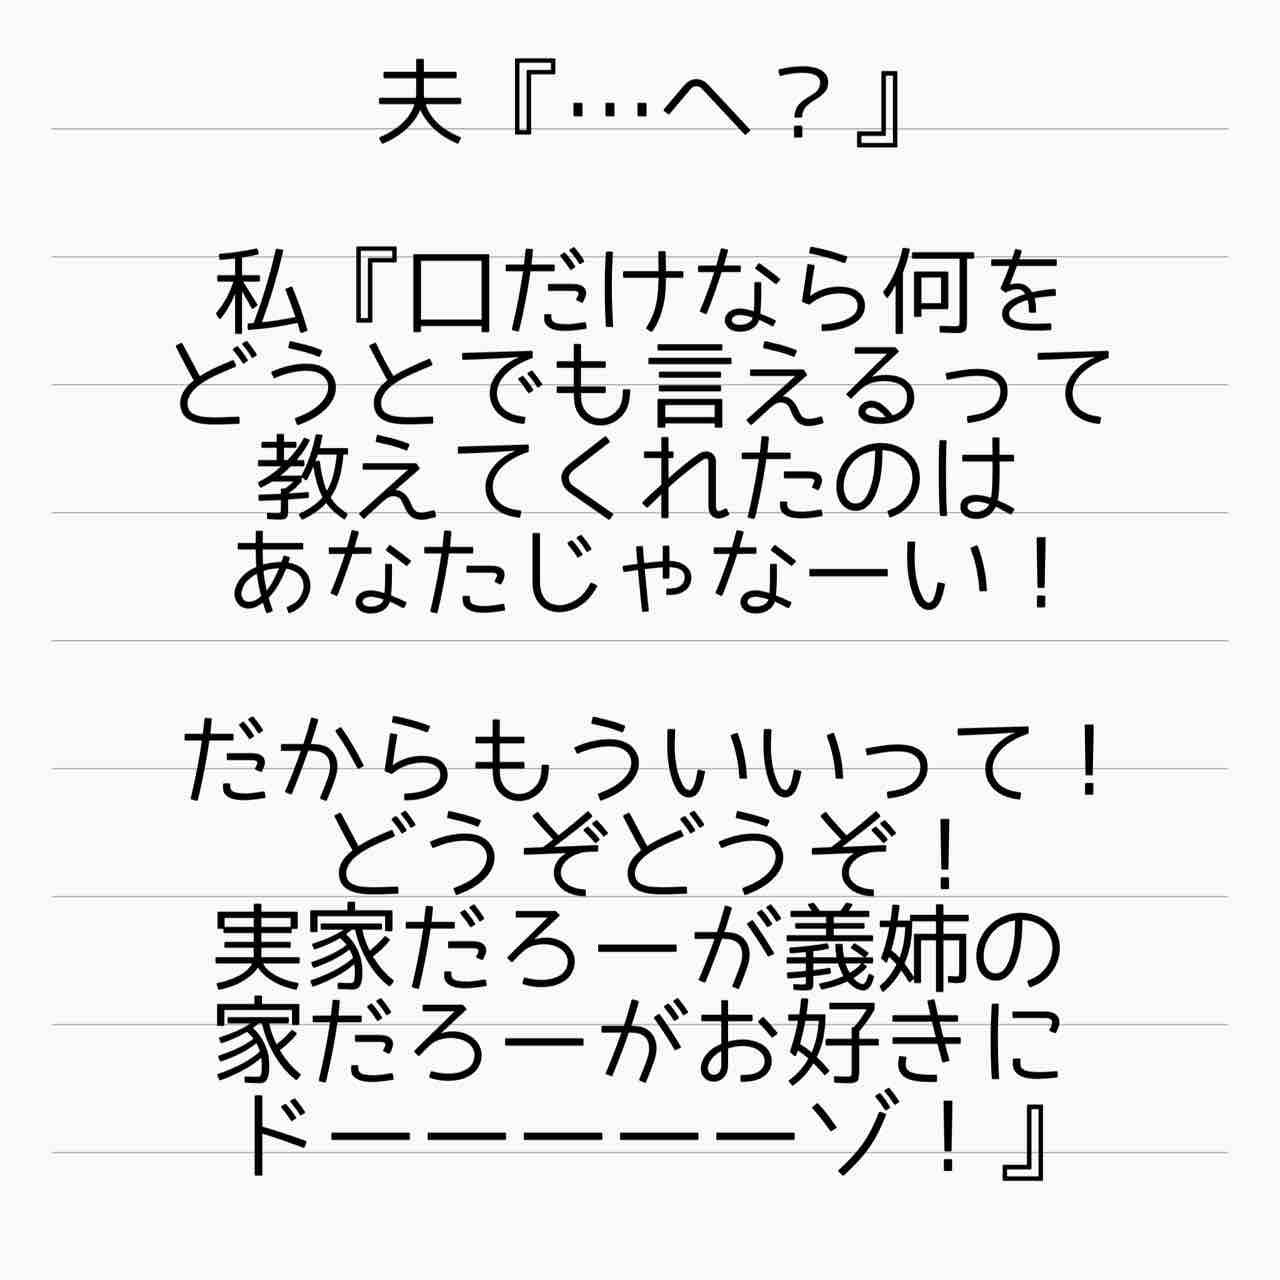 夫『…へ？』
私『口だけなら何を
どうとでも言えるって
教えてくれたのは
あなたじゃなーい！
だからもういいって！
どうぞどうぞ！
実家だろーが義姉の
家だろーがお好きに
ドーーーーーゾ！』